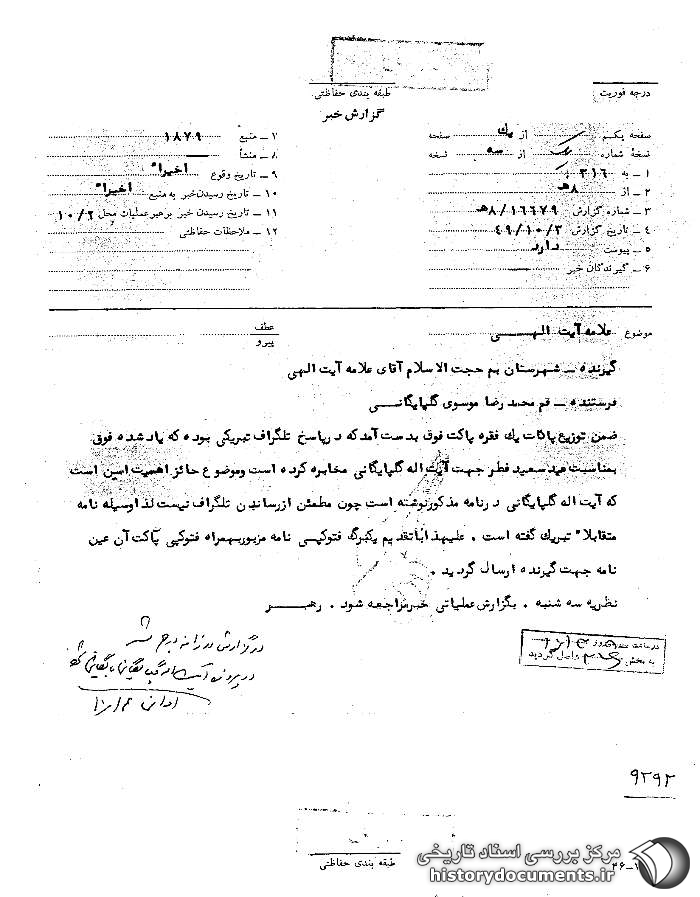 درجه فوریت
طبقه بندی حفاظتی
گزارش خبر
صفحه یکم از یک صفحه
نسخهٔ شماره یک از سه نسخه
۱ ـ به ۳۱۶
۲ ـ از ۸هـ
۳ ـ شماره گزارش ۸/۱۶۶۷۹هـ
۴ ـ تاریخ گزارش ۴۹/۱۰/۲
۵ ـ پیوست دارد
۶ ـ گیرندگان خبر
۷ ـ منبع ۱۸۷۹
۸ ـ منشأ
۹ ـ تاریخ وقوع اخیراً
۱۰ ـ تاریخ رسیدن خبر به منبع اخیراً
۱۱ ـ تاریخ رسیدن خبر برهبر عملیات محل ۱۰/۲
۱۲ ـ ملاحظات حفاظتی
موضوع علامه آیت الهــی
عطف
پیرو
گیرنده ـ شهرستان بم حجت الاسلام آقای علامه آیت الهی
فرستنده ـ قم محمد رضا موسوی گلپایگانــی
ضمن توزیع پاکات یک فقره پاکت فوق بدست آمد که در پاسخ تلگراف تبریکی بوده که یاد شده فوق
بمناسبت عید سعید فطر جهت آیت اله گلپایگانی مخابره کرده است وموضوع حائز اهمیت اسین است
که آیت اله گلپایگانی در نامه مذکور نوشته است چون مطمئن از رساندن تلگراف نیست لذا وسیله نامه
متقابلاً تبریک گفته است . علیهذا باتقدیم یکبرگ فتوکپی نامه مزبور بهمراه فتوکپی پاکت آن عین
نامه جهت گیرنده ارسال گردید .
نظریه سه شنبه . بگزارش عملیاتی خبر مراجعه شود . رهبــر
در گزارش روزانه درج شد
در پرونده آیت اله گلپایگانی بایگانی شود
به بخش واصل گردید
۹۲۹۲
طبقه بندی حفاظتی
مرکز بررسی اسناد تاریخی
historydocuments.ir